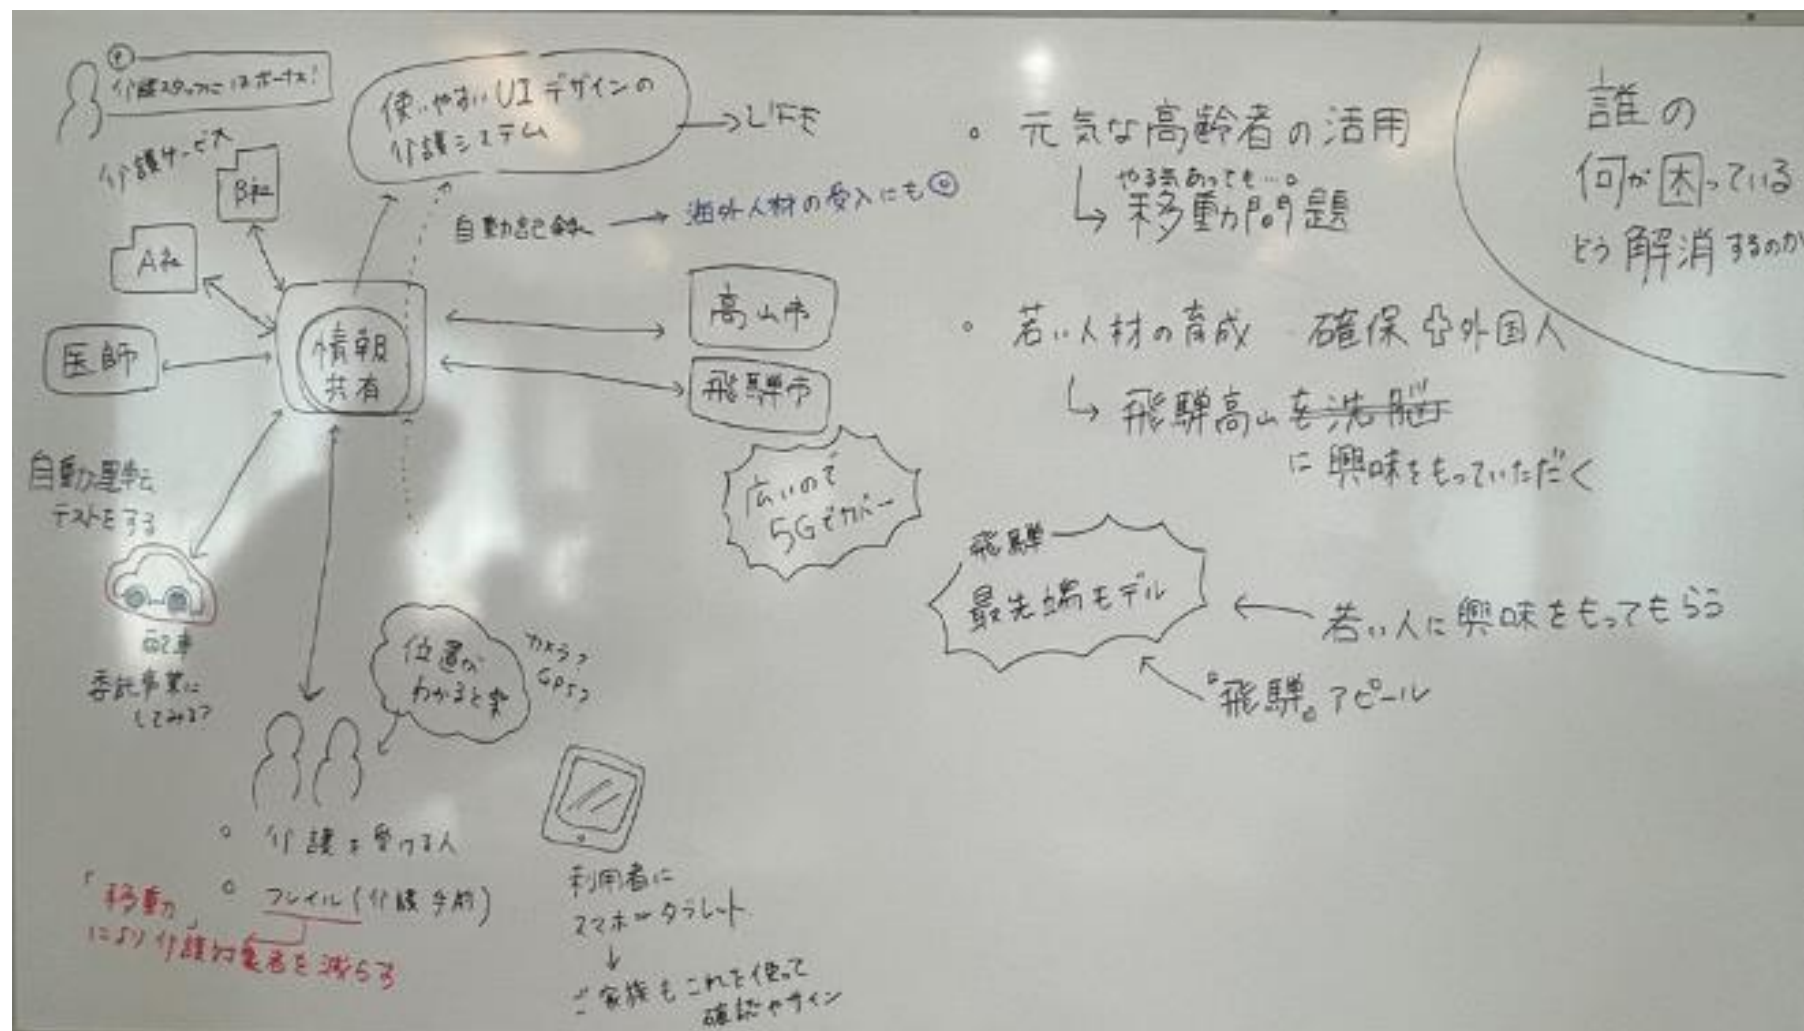 介護スタッフにはボーナス!
介護サービス
B社
A社
医師
情報
共有
使いやすいUIデザインの
介護システム
→LIFE
自動記録 → 海外人材の受入にも◎
高山市
飛騨市
広いので
5Gでカバー
自動運転
テストをする
配車
委託事業に
してみる?
位置が
わかると楽
カメラ?
GPS?
。介護を受ける人
。フレイル(介護手前)
「移動」
により介護対象者を減らす
利用者に
スマホorタブレット
↓
ご家族もこれを使って
確認やサイン
。元気な高齢者の活用
やる気あっても…。
↳移動問題
。若い人材の育成 確保 +外国人
↳飛騨高山を洗脳
に興味をもっていただく
飛騨
最先端モデル
← 若い人に興味をもってもらう
『飛騨』アピール
誰の
何が困っている
どう解消するのか